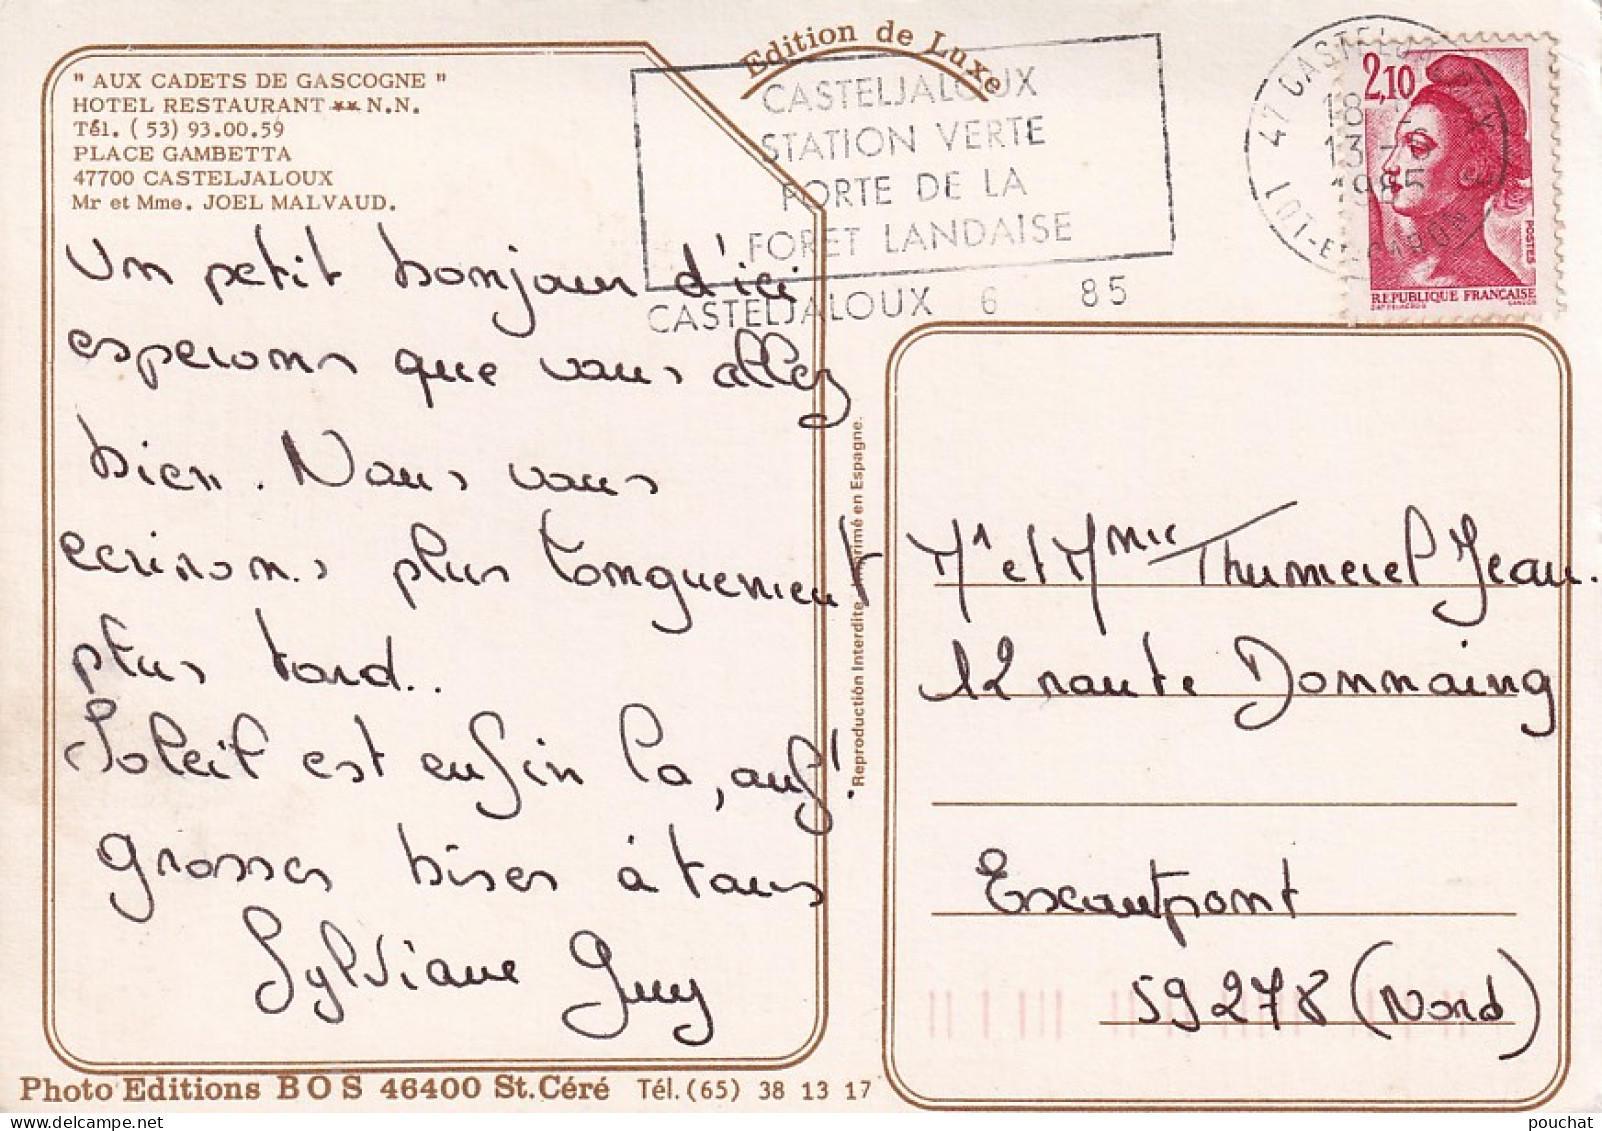 Edition de Luxe
" AUX CADETS DE GASCOGNE "
HOTEL RESTAURANT ** N.N.
Tél. ( 53) 93.00.59
PLACE GAMBETTA
47700 CASTELJALOUX
Mr et Mme. JOEL MALVAUD.
CASTELJALOUX
STATION VERTE
PORTE DE LA
FORET LANDAISE
CASTELJALOUX 6 85
47 CASTELJALOUX
18
13 - 6
1985
LOT-ET-GARONNE
2,10
POSTES
REPUBLIQUE FRANÇAISE
Un petit bonjour d'ici
esperons que vous allez
bien. Nous vous
ecrirons plus longuement
plus tard..
Soleil est enfin la, ouf!
Grosses bises à tous
Sylviane Guy
Reproduction Interdite. Imprimé en Espagne.
Mr et Mme Thumerel Jean.
12 route Dommaing
Escautpont
59278 (Nord)
Photo Editions BOS 46400 St.Céré Tél.(65) 38 13 17
pouchat